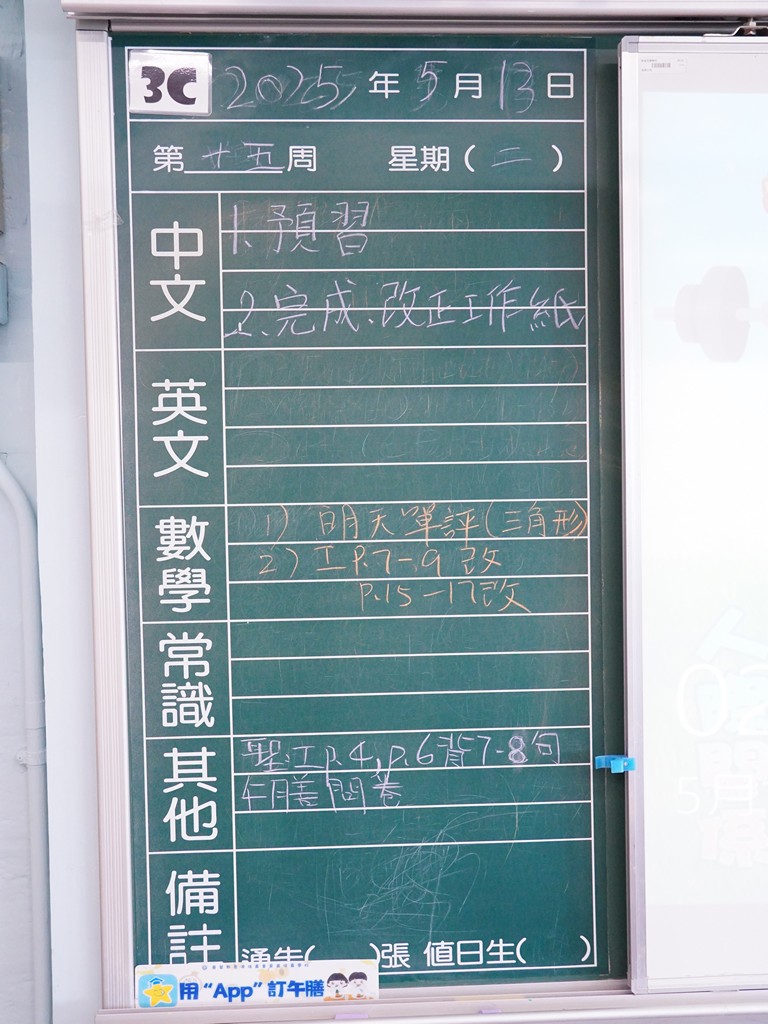 3C 2025年5月13日
第 十五 周 星期(二)
中文
1. 預習
2. 完成、改正工作紙
英文
數學
1) 明天單評(三角形)
2) 工P.7-9 改
P.15-17改
常識
其他
聖:工P.4, P.6背7-8句
午膳問卷
備註
通告( )張 值日生( )
用 “App” 訂午膳
02
5月